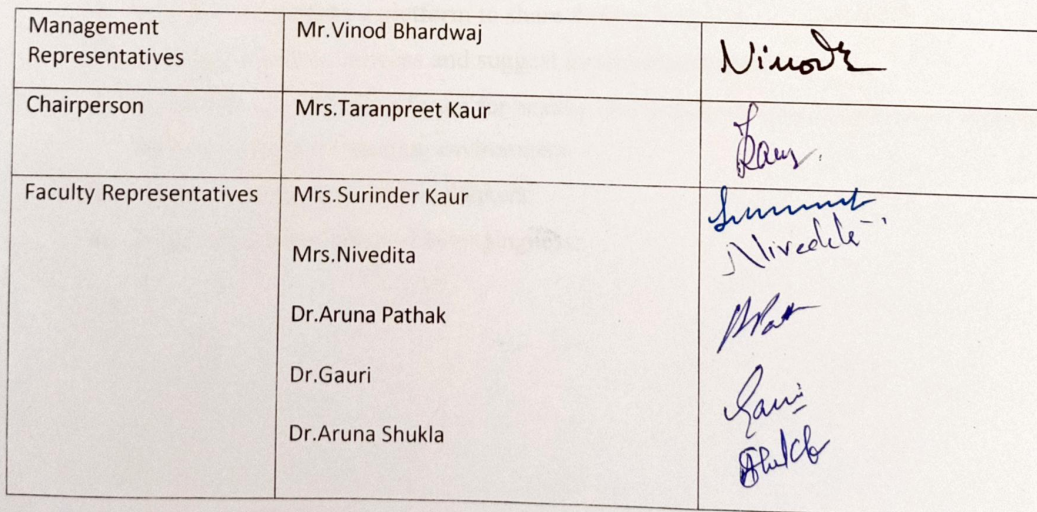 Management Representatives Mr.Vinod Bhardwaj Vinod
Chairperson Mrs.Taranpreet Kaur Kaur
Faculty Representatives Mrs.Surinder Kaur
Mrs.Nivedita Nivedita
Dr.Aruna Pathak
Dr.Gauri Gauri
Dr.Aruna Shukla Shukla